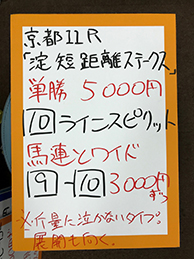 京都11R
「淀短距離ステークス」
単勝 5000円
10 ライニスピリット
馬連とワイド
9-10 3000円ずつ
※斤量に泣かないタイプ。
展開も向く。